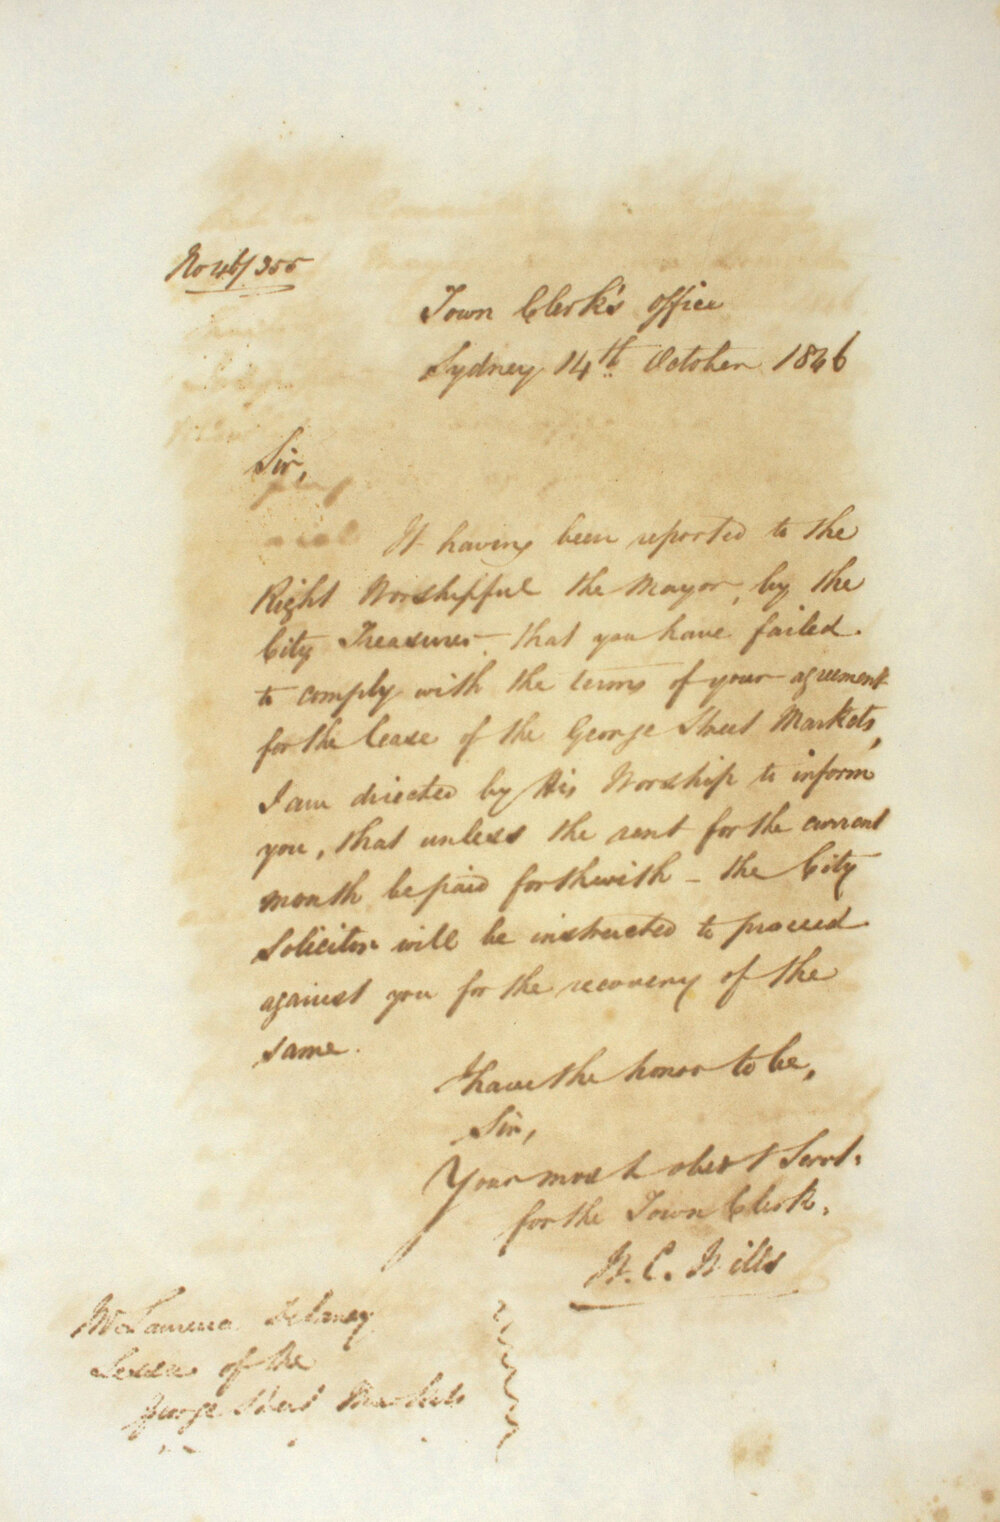 No 46/355
Town Clerk's Office
Sydney 14th October 1846
Sir,
It having been reported to the
Right Worshipful the Mayor, by the
City Treasurer that you have failed
to comply with the terms of your agreement
for the lease of the George Street Markets,
I am directed by His Worship to inform
you, that unless the rent for the current
month be paid forthwith – the City
Solicitor will be instructed to proceed
against you for the recovery of the
same.
I have the honor to be,
Sir,
Your most obedt Servt.
for the Town Clerk.
W. C. Wills
Mr Laurence Delaney
Lessee of the
George Street Markets